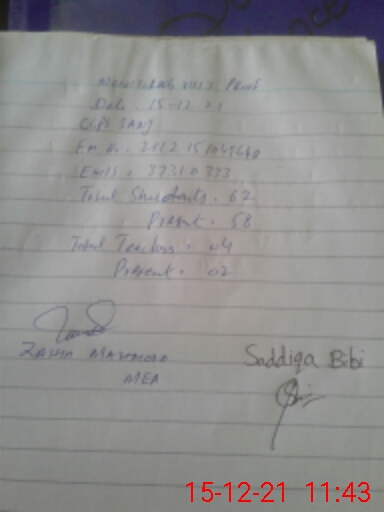 Monitoring Visit Proof
Date. 15-12-21
GGPS SANJ
Em No. 
EMIS: 37310333
Total Students. 62
Present. 58
Total Teachers. 04
Present. 02
MAHMOOD
MEA
Saddiqa Bibi
15-12-21 11:43